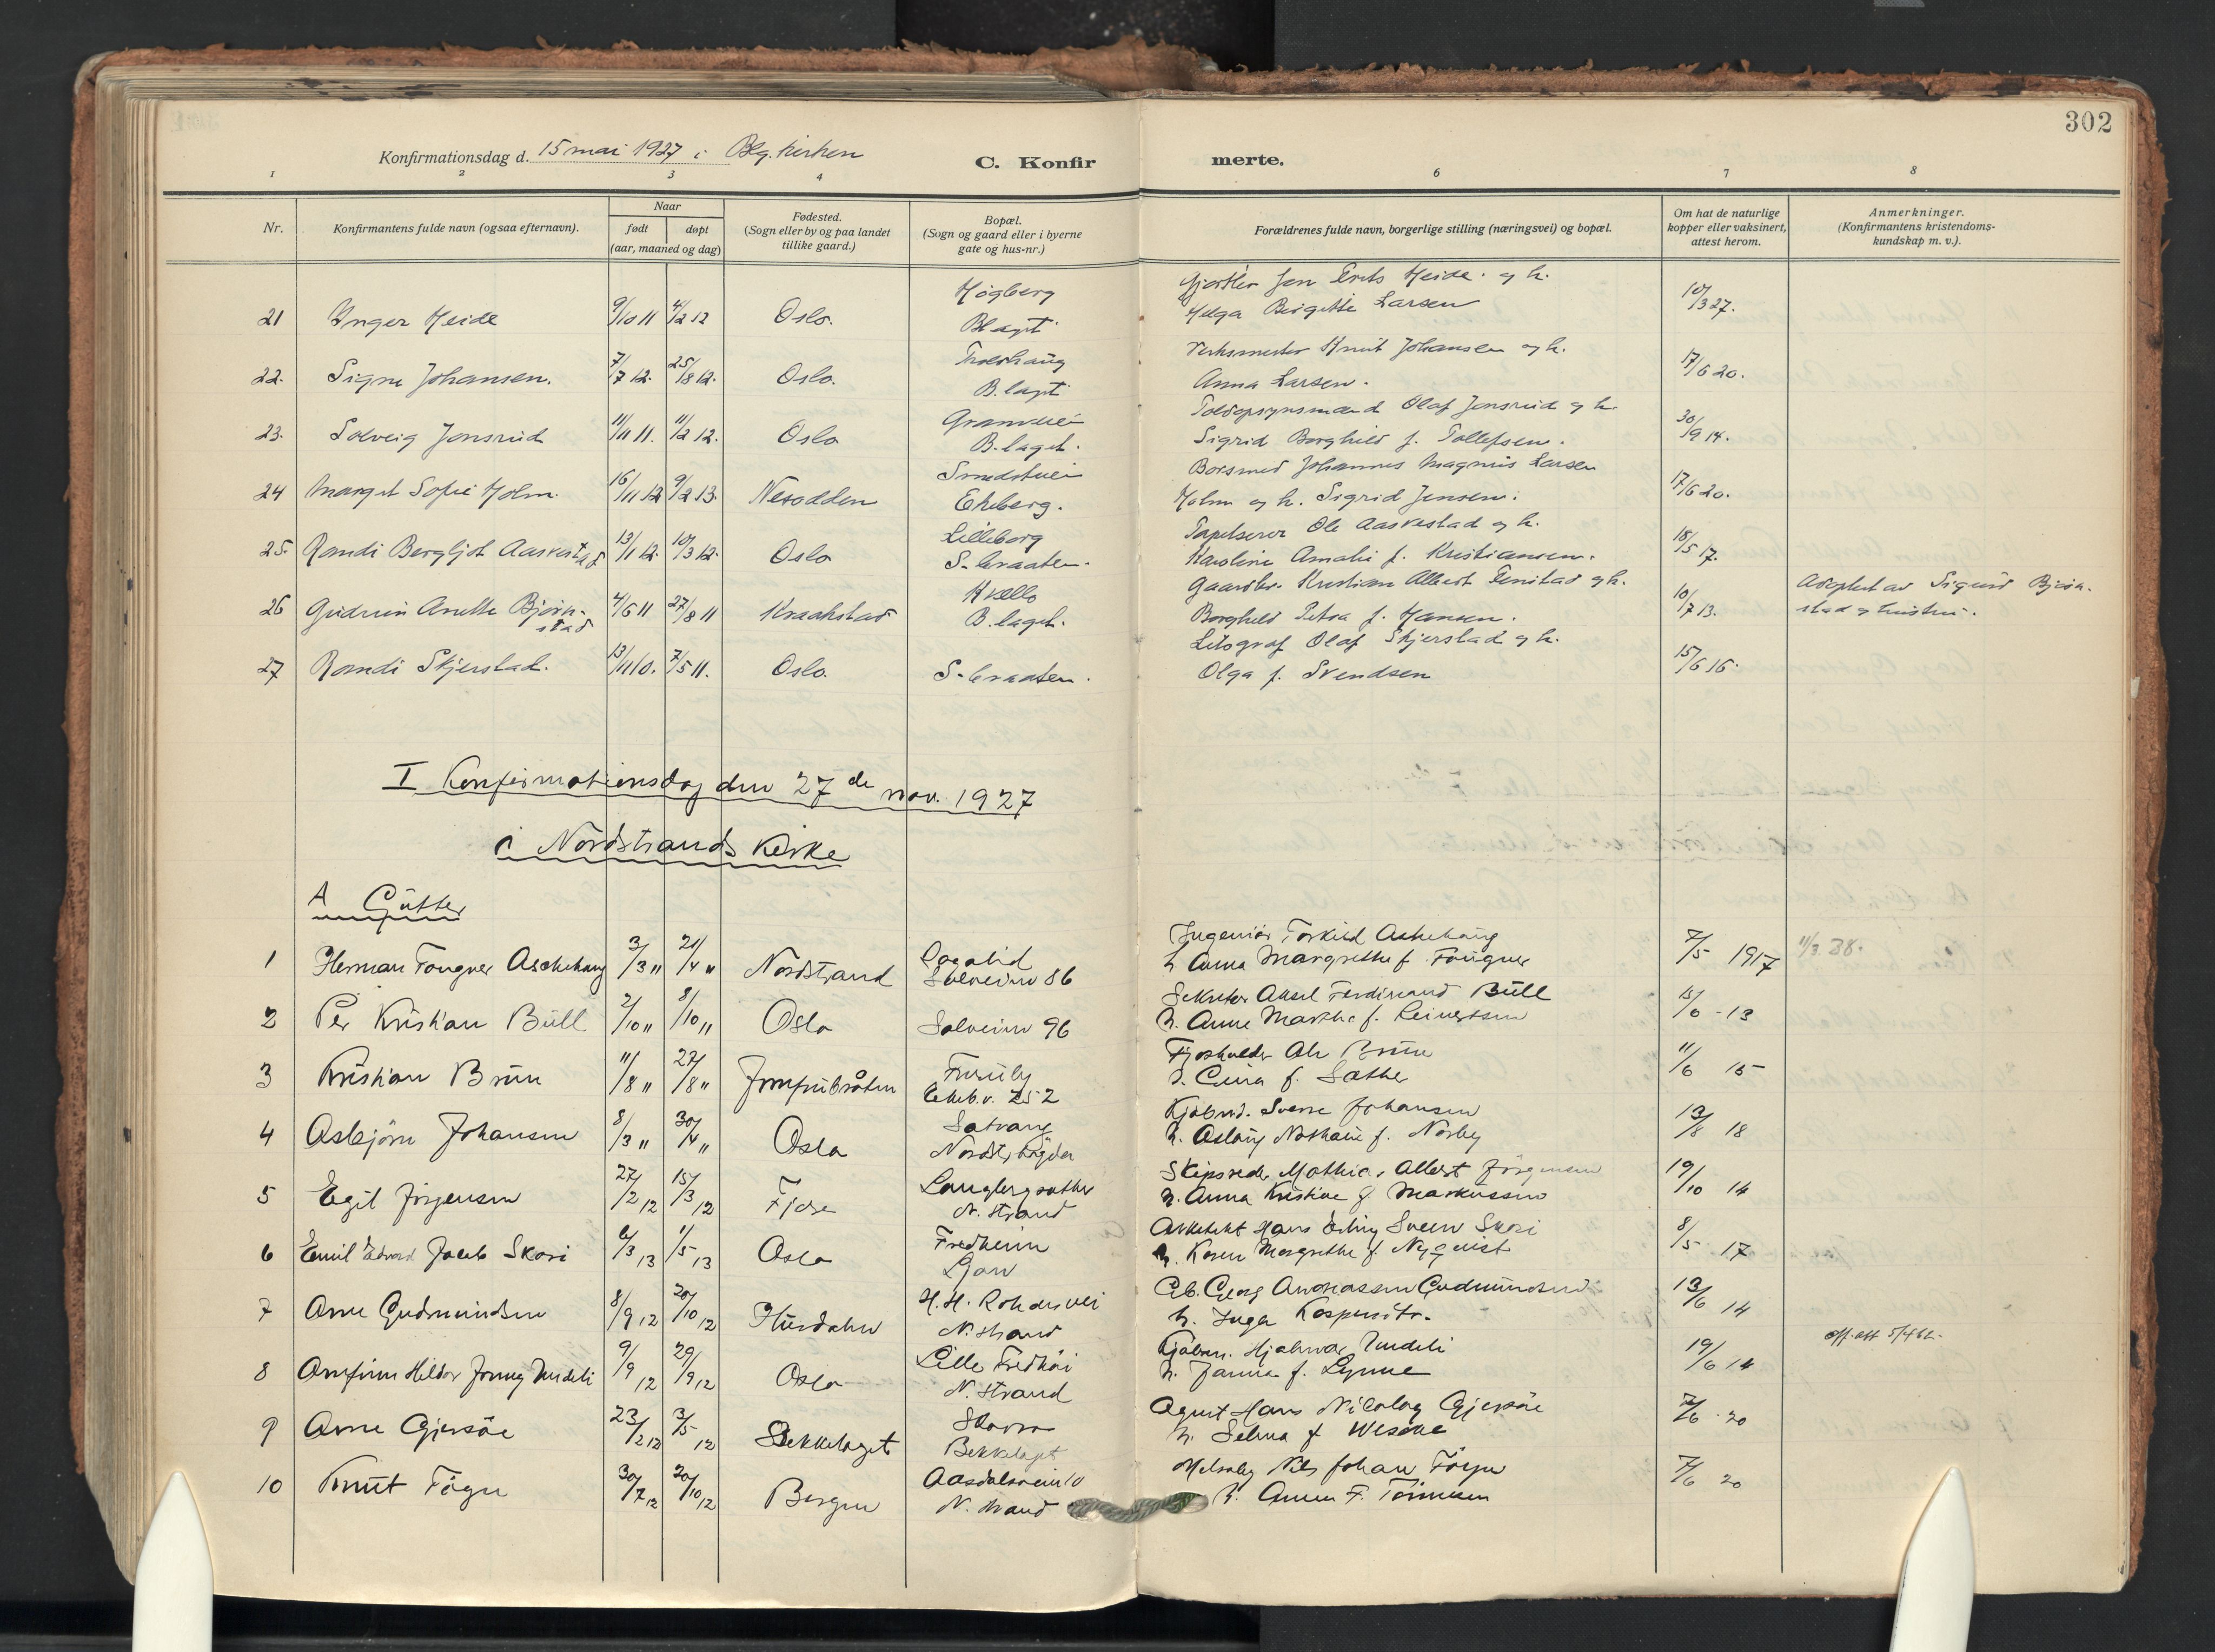 302
Konfirmationsdag d. 15 mai 1927 i Blg. kirken
C. Konfirmerte.
1 2 3 4 6 7 8
Nr.
Konfirmantens fulde navn (ogsaa efternavn).
Naar
født døpt
(aar, maaned og dag)
Fødested.
(Sogn eller by og paa landet
tillike gaard.)
Bopæl.
(Sogn og gaard eller i byerne
gate og hus-nr.)
Forældrenes fulde navn, borgerlige stilling (næringsvei) og bopæl.
Om hat de naturlige
kopper eller vaksinert,
attest herom.
Anmerkninger.
(Konfirmantens kristendoms-
kundskap m. v.).
Høgberg
Gjørtler Jen Heide. og h.
21 Inger Heide 9/10 11 4/2 12 Oslo. Blagt. Helga Birgitte Larsen 10/3 27.
Verksmester Knut Johansen og h.
22. Signe Johansen. 7/7 12. 25/8 12. Oslo. B. laget Anna Larsen. 17/6 20.
Toldopsynsmand Olaf Jonsrud og h.
23. Solveig Jonsrud 11/11 11. 11/2 12. Oslo B. laget. Sigrid Borghild f. Tollefsen. 30/9 14.
Smedstuei Johannes Magnus Larsen
24 Margit Sofie Holm. 16/11 12 9/2 13. Nesodden Ekeberg. Holm og h. Sigrid Jensen. 17/6 20.
Lilleborg Tapetserer Ole Aasvestad og h.
25. Randi Bergljot Aasvestad 13/1 12. 10/3 12. Oslo S. braaten. Karoline Amalie f. Kristiansen. 18/5 17.
Kvello Gaardbr. Kristian Albert Fenstad og h.
26 Gudrun Anette Bjørn-
stad 4/6 11 27/8 11 Kraakstad B. laget. Borghild Petra f. Hansen. 10/7 13. Adoptert av Sigurd Bjørn-
stad og hustru.
Litograf Olaf Skjerstad og h.
27 Randi Skjerstad. 13/11 10. 7/5 11. Oslo. S. braaten. Olga f. Svendsen 15/6 16.
I Konfirmationsdag den 27de nov. 1927
i Nordstrands Kirke
A Gutter
Ingeniør Torkild Aschehoug
1 Herman Fougner Aschehoug 3/3 11 21/4 11 Nordstrand Solveien 86 h. Anna Margrethe f. Fougner 7/5 1917 11/3 38.
Sekretær Aksel Ferdinand Bull
2 Per Kristian Bull 2/10 11 8/10 11 Oslo Solveien 96 h. Anne Marthe f. Leinertsen
Furuly
3 Kristian Bruu 11/8 11 27/8 11 Jomfrubråten Ekeb.v. 252 f. Sæther 11/6 15
Solvang Sverre Johansen
4 Asbjørn Johansen 8/3 11 30/4 11 Oslo h. Aslaug Nathalie f. Norby 13/8 18
Skipsreder Mathias Albert Jørgensen
5 Egil Jørgensen 27/2 12 15/3 12 N. strand h. Anna Kristine f. Markussen 19/10 14
Fredheim Arkitekt Hans Erling Sveen Skari
6 Emil Edvard Jacob Skari 6/3 13 1/5 13 Oslo Ljan h. Karen Margrethe f. Nyqvist 8/5 17
Georg Andreassen Gudmundsen
7 Arne Gudmundsen 8/9 12 20/10 12 Hurdalen N. strand h. Inga Kaspersdtr. 13/6 14
Hjalmar Undeli off. att 5/4 62.
8 Arnfinn Hildor Jonny Undeli 9/9 12 29/9 12 Oslo N. Strand h. Janna f. Lynne 19/6 14
Agent Hans Nicolay Gjersøe
9 Arne Gjersøe 23/2 12 3/5 12 Bekkelaget Bekkelaget h. Selma f. 7/6 20
Aasdalsveien 10 Nils Johan
10 Knut 30/7 12 20/10 12 Bergen N. strand 7/6 20